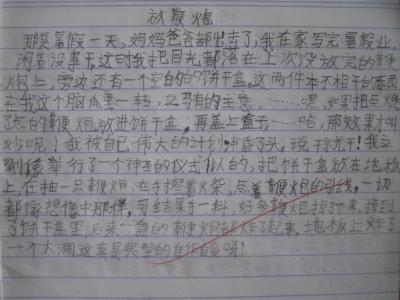 放鞭炮
那是暑假一天,妈妈爸爸都出去了,我在家写完暑假业,
闲着没事干,这时我把目光都落在上次没放完的鞭
炮上,旁边还有一个空白的的饼干盒。这两件本不相干的东西
在我这个脑瓜里一转,之有的主意……嘿,如果把点燃
了点的鞭炮放进饼干盒,再盖上盒子……哈,那效果才叫
妙呢!我被自己伟大的计划冲昏了头。说干就干!我立
刻像举行了一个神圣的仪式似的,把饼干盒放在地板
上,在抽一只鞭炮,在寸擦着火柴,点着鞭炮的引线,一切
都像想像中那样,可结果手一抖,好多鞭炮掉下来,掉到
了饼干盒里,后来一盒的鞭炮都炸了起来,地板上炸了
一个大洞这真是典型的自作自受呀!